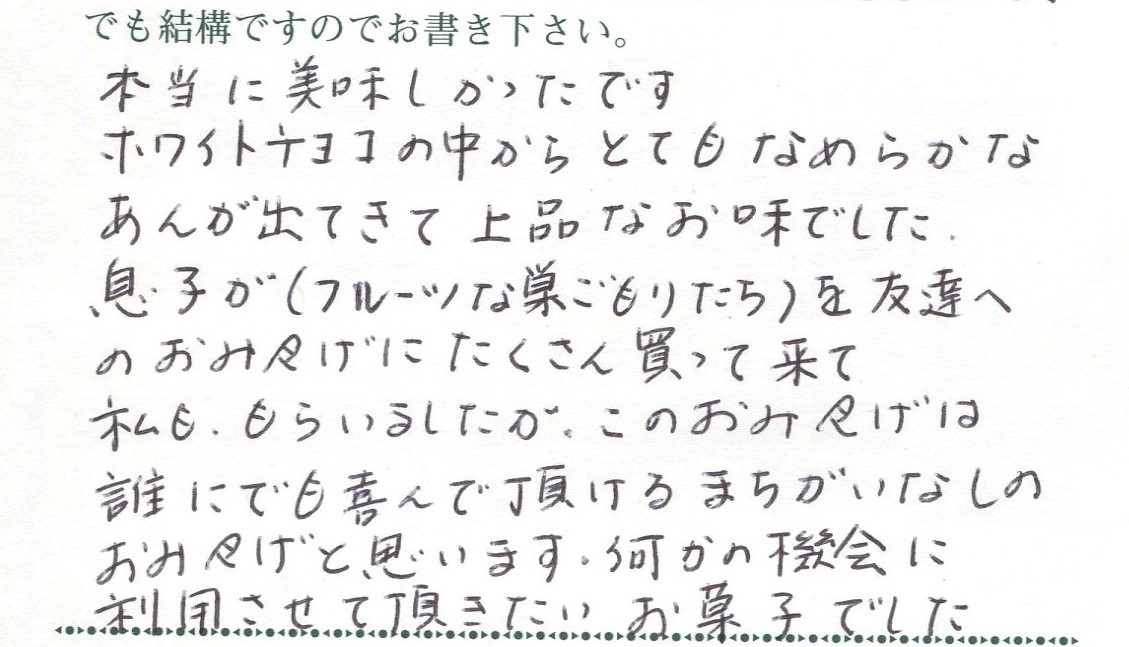 でも結構ですのでお書き下さい。
本当に美味しかったです
ホワイトチョコの中からとてもなめらかな
あんが出てきて上品なお味でした.
息子が(フルーツな巣ごもりたち)を友達へ
のおみやげにたくさん買って来て
私も、もらいましたが、このおみやげは
誰にでも喜んで頂けるまちがいなしの
おみやげと思います.何かの機会に
利用させて頂きたいお菓子でした